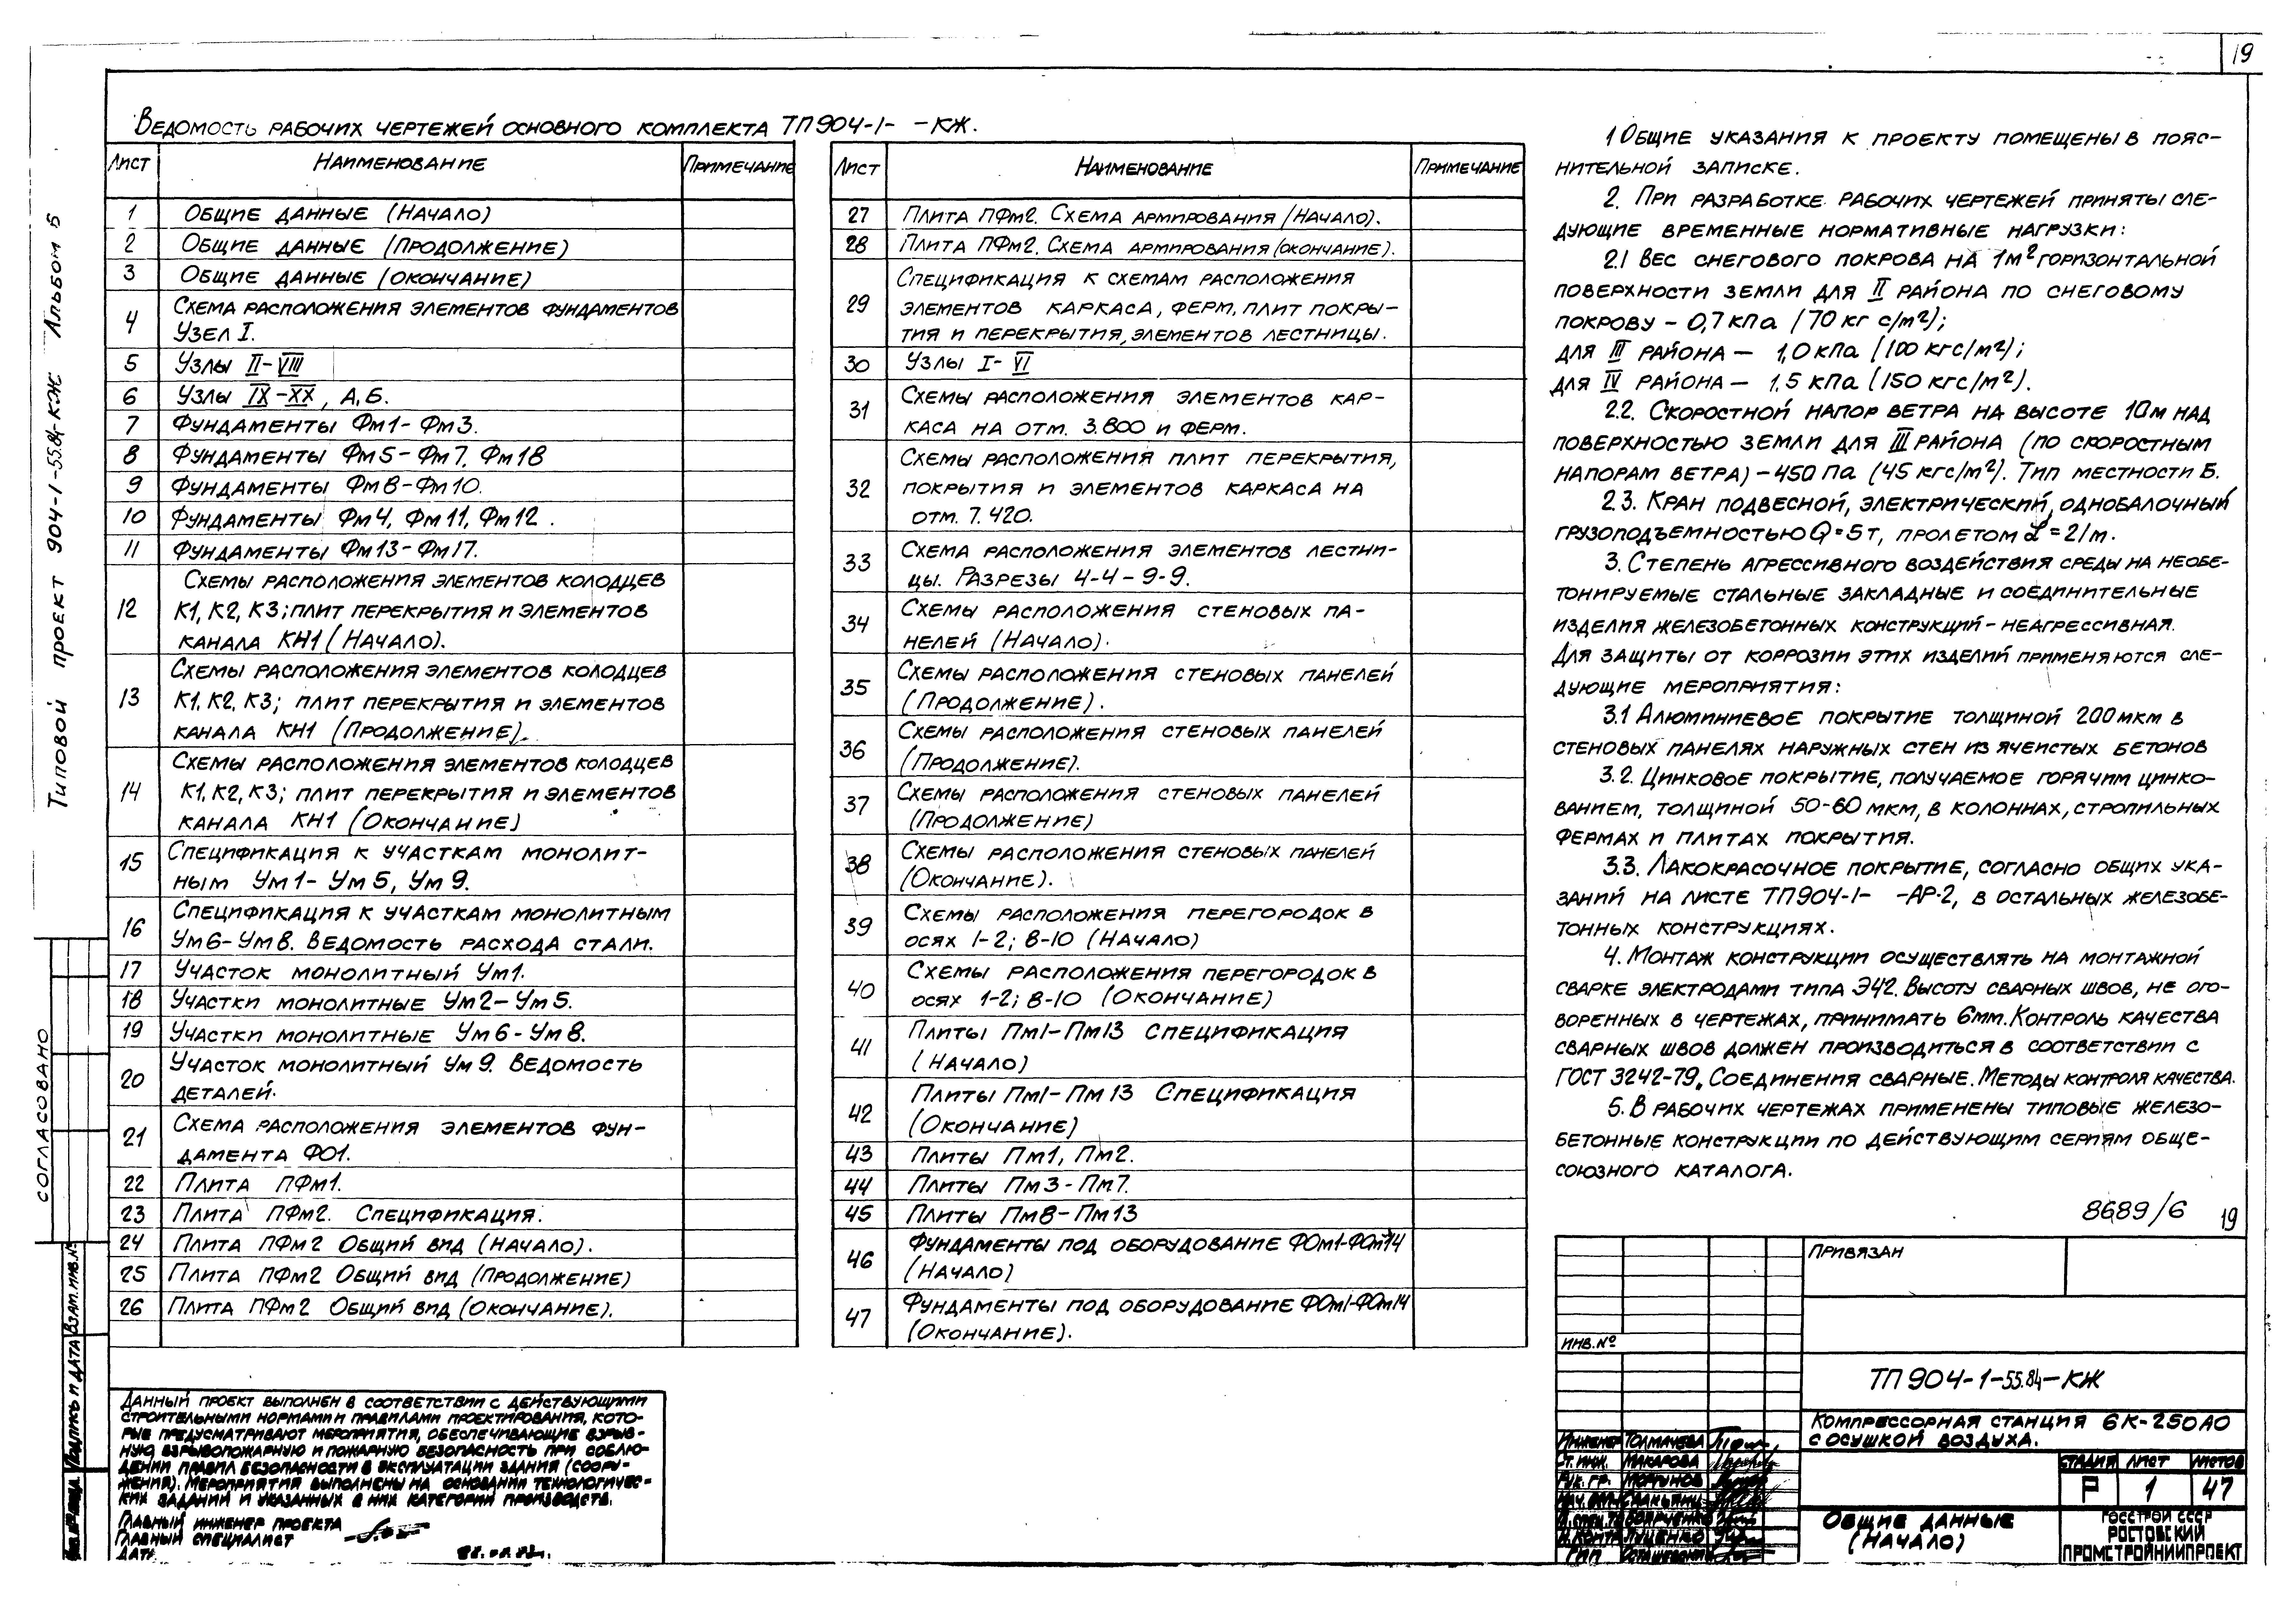 19
Типовой проект 904-1-55.84-КЖ Альбом 5
Ведомость рабочих чертежей основного комплекта ТП904-1- -КЖ.
Лист Наименование Примечание
1 Общие данные (Начало)
2 Общие данные (Продолжение)
3 Общие данные (Окончание)
4 Схема расположения элементов фундаментов
Узел I.
5 Узлы II-VIII
6 Узлы IX-XX, А, Б.
7 Фундаменты Фм1-Фм3.
8 Фундаменты Фм5-Фм7, Фм18
9 Фундаменты Фм8-Фм10.
10 Фундаменты Фм4, Фм11, Фм12.
11 Фундаменты Фм13-Фм17.
12 Схемы расположения элементов колодцев
К1, К2, К3; плит перекрытия и элементов
канала КН1 (Начало).
13 Схемы расположения элементов колодцев
К1, К2, К3; плит перекрытия и элементов
канала КН1 (Продолжение).
14 Схемы расположения элементов колодцев
К1, К2, К3; плит перекрытия и элементов
канала КН1 (Окончание)
15 Спецификация к участкам монолит-
ным Ум1-Ум5, Ум9.
16 Спецификация к участкам монолитным
Ум6-Ум8. Ведомость расхода стали.
17 Участок монолитный Ум1.
18 Участки монолитные Ум2-Ум5.
19 Участки монолитные Ум6-Ум8.
20 Участок монолитный Ум9. Ведомость
деталей.
21 Схема расположения элементов фун-
дамента ФО1.
22 Плита ПФм1.
23 Плита ПФм2. Спецификация.
24 Плита ПФм2 Общий вид (Начало).
25 Плита ПФм2 Общий вид (Продолжение)
26 Плита ПФм2 Общий вид (Окончание).
Лист Наименование Примечание
27 Плита ПФм2. Схема армирования (Начало).
28 Плита ПФм2. Схема армирования (Окончание).
29 Спецификация к схемам расположения
элементов каркаса, ферм, плит покры-
тия и перекрытия, элементов лестницы.
30 Узлы I-VI
31 Схемы расположения элементов кар-
каса на отм. 3.800 и ферм.
32 Схемы расположения плит перекрытия,
покрытия и элементов каркаса на
отм. 7.420.
33 Схема расположения элементов лестни-
цы. Разрезы 4-4-9-9.
34 Схемы расположения стеновых па-
нелей (Начало).
35 Схемы расположения стеновых панелей
(Продолжение).
36 Схемы расположения стеновых панелей
(Продолжение).
37 Схемы расположения стеновых панелей
(Продолжение)
38 Схемы расположения стеновых панелей
(Окончание).
39 Схемы расположения перегородок в
осях 1-2; 8-10 (Начало)
40 Схемы расположения перегородок в
осях 1-2; 8-10 (Окончание)
41 Плиты Пм1-Пм13 Спецификация
(Начало)
42 Плиты Пм1-Пм13 Спецификация
(Окончание)
43 Плиты Пм1, Пм2.
44 Плиты Пм3-Пм7.
45 Плиты Пм8-Пм13
46 Фундаменты под оборудование ФОм1-ФОм14
(Начало)
47 Фундаменты под оборудование ФОм1-ФОм14
(Окончание).
1 Общие указания к проекту помещены в пояс-
нительной записке.
2. При разработке рабочих чертежей приняты сле-
дующие временные нормативные нагрузки:
2.1 Вес снегового покрова на 1м² горизонтальной
поверхности земли для II района по снеговому
покрову - 0,7 кПа (70 кгс/м²);
для III района - 1,0 кПа (100 кгс/м²);
для IV района - 1.5 кПа (150 кгс/м²).
2.2. Скоростной напор ветра на высоте 10м над
поверхностью земли для III района (по скоростным
напорам ветра) - 450 Па (45 кгс/м²). Тип местности Б.
2.3. Кран подвесной, электрический, однобалочный
грузоподъемностью Q=5т, пролетом L=21м.
3. Степень агрессивного воздействия среды на необе-
тонируемые стальные закладные и соединительные
изделия железобетонных конструкций - неагрессивная.
Для защиты от коррозии этих изделий применяются сле-
дующие мероприятия:
3.1 Алюминиевое покрытие толщиной 200 мкм в
стеновых панелях наружных стен из ячеистых бетонов
3.2. Цинковое покрытие, получаемое горячим цинко-
ванием, толщиной 50-60 мкм, в колоннах, стропильных
фермах и плитах покрытия.
3.3. Лакокрасочное покрытие, согласно общих ука-
заний на листе ТП904-1- -АР-2, в остальных железобе-
тонных конструкциях.
4. Монтаж конструкции осуществлять на монтажной
сварке электродами типа Э42. Высоту сварных швов, не ого-
воренных в чертежах, принимать 6мм. Контроль качества
сварных швов должен производиться в соответствии с
ГОСТ 3242-79. Соединения сварные. Методы контроля качества.
5. В рабочих чертежах применены типовые железо-
бетонные конструкции по действующим сериям обще-
союзного каталога.
8689/6 19
Согласовано
Взам. инв. №
Подпись и дата
Данный проект выполнен в соответствии с действующими
строительными нормами и правилами проектирования, кото-
рые предусматривают мероприятия, обеспечивающие взрыв-
ную, взрывопожарную и пожарную безопасность при соблю-
дении правил безопасности в эксплуатации здания (соору-
жения). Мероприятия выполнены на основании технологичес-
ких заданий и указанных в них категорий производств.
Главный инженер проекта
Главный специалист
Дата
Привязан
Инв. №
ТП 904-1-55.84-КЖ
Компрессорная станция 6К-250АО
с осушкой воздуха.
Инженер Толмачева
Ст. инж. Макарова
Рук. гр.
Н. контр. Луценко
ГИП
Стадия Лист Листов
Р 1 47
Общие данные
(Начало)
Госстрой СССР
Ростовский
Промстройниипроект